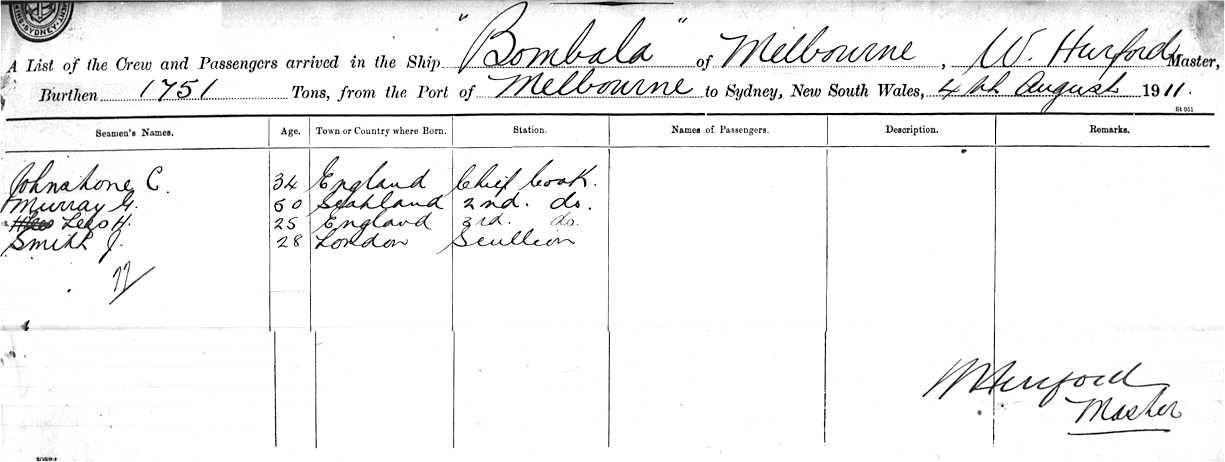 SYDNEY
A List of the Crew and Passengers arrived in the Ship "Bombala" of Melbourne, W. Hurford Master,
Burthen 1751 Tons, from the Port of Melbourne to Sydney, New South Wales, 4th August 1911.
St 951
Seamen's Names. Age. Town or Country where Born. Station. Names of Passengers. Description. Remarks.
Johnstone C. 34 England Chief Cook.
Murray G. 50 Scotland 2nd. do.
Lees H. 25 England 3rd. do.
Smith J. 28 London Scullion
77
WHurford
Master